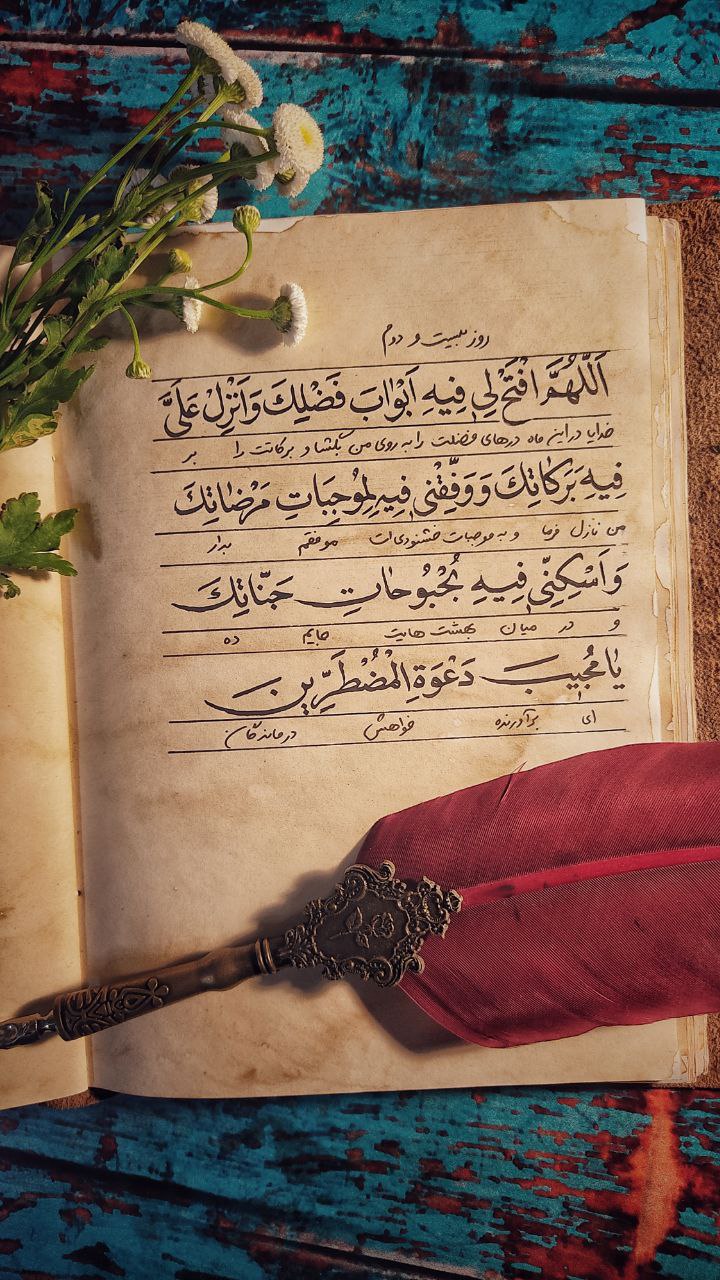 روز بیست و دوم
اَللّٰهُمَّ افْتَحْ لي فيهِ اَبْوٰابَ فَضْلِكَ وَاَنْزِلْ عَلَيَّ
خدایا در این ماه درهای فضلت را به روی من بگشا و برکاتت را بر
فيهِ بَرَكٰاتِكَ وَ وَفِّقْني فيهِ لِمُوجِبَاتِ مَرْضٰاتِكَ
من نازل فرما و به موجبات خشنودی ات موفقم بدار
وَاَسْكِنّي فيهِ بُحْبُوحٰاتِ جَنّٰاتِكَ
و در میان بهشت هایت جایم ده
يٰا مُجيبَ دَعْوَةِ الْمُضْطَرّينَ
ای برآورنده خواهش درماندگان